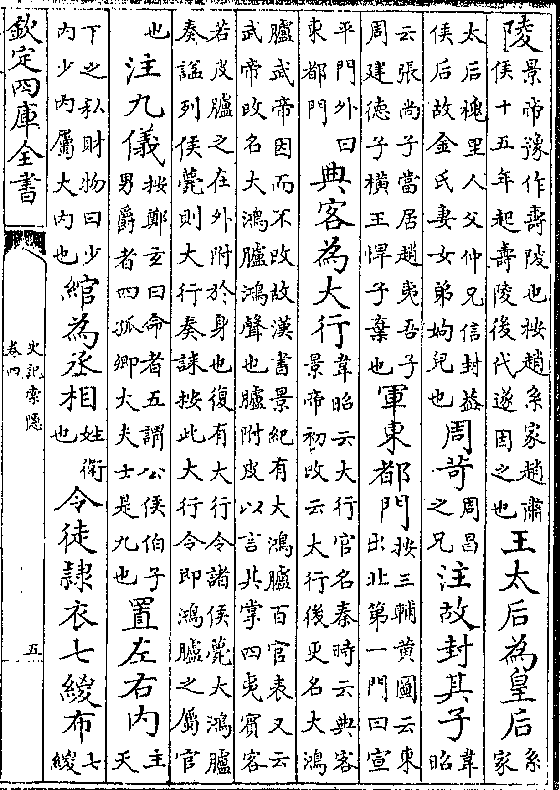 陵景帝豫作壽陵也按趙系家趙肅
侯十五年起壽陵後代遂因之也王太后為皇后系家
太后槐里人父仲兄信封葢
侯后故金氏妻女弟姁兒也周苛周昌之兄注故封其子韋昭
云張尚子當居趙夷吾子
周建德子橫王悍子棄也軍東都門按三輔黃圖云東
出北第一門曰宣
平門外曰
東都門典客為大行韋昭云大行官名秦時云典客
景帝初改云大行後更名大鴻
臚武帝因而不改故漢書景紀有大鴻臚百官表又云
武帝改名大鴻臚鴻聲也臚附皮以言其掌四夷賓客
若皮臚之在外附於身也復有大行令諸侯薨大鴻臚
奏諡列侯薨則大行奏誄按此大行令即鴻臚之屬官
也注九儀按鄭玄曰命者五謂公侯伯子
男爵者四孤卿大夫士是九也置左右內主天
下之私財物曰少
內少內屬大內也綰為丞相姓衛也令徒隸衣七緵布七緵
欽定四庫全書
史記索隱
卷四
五